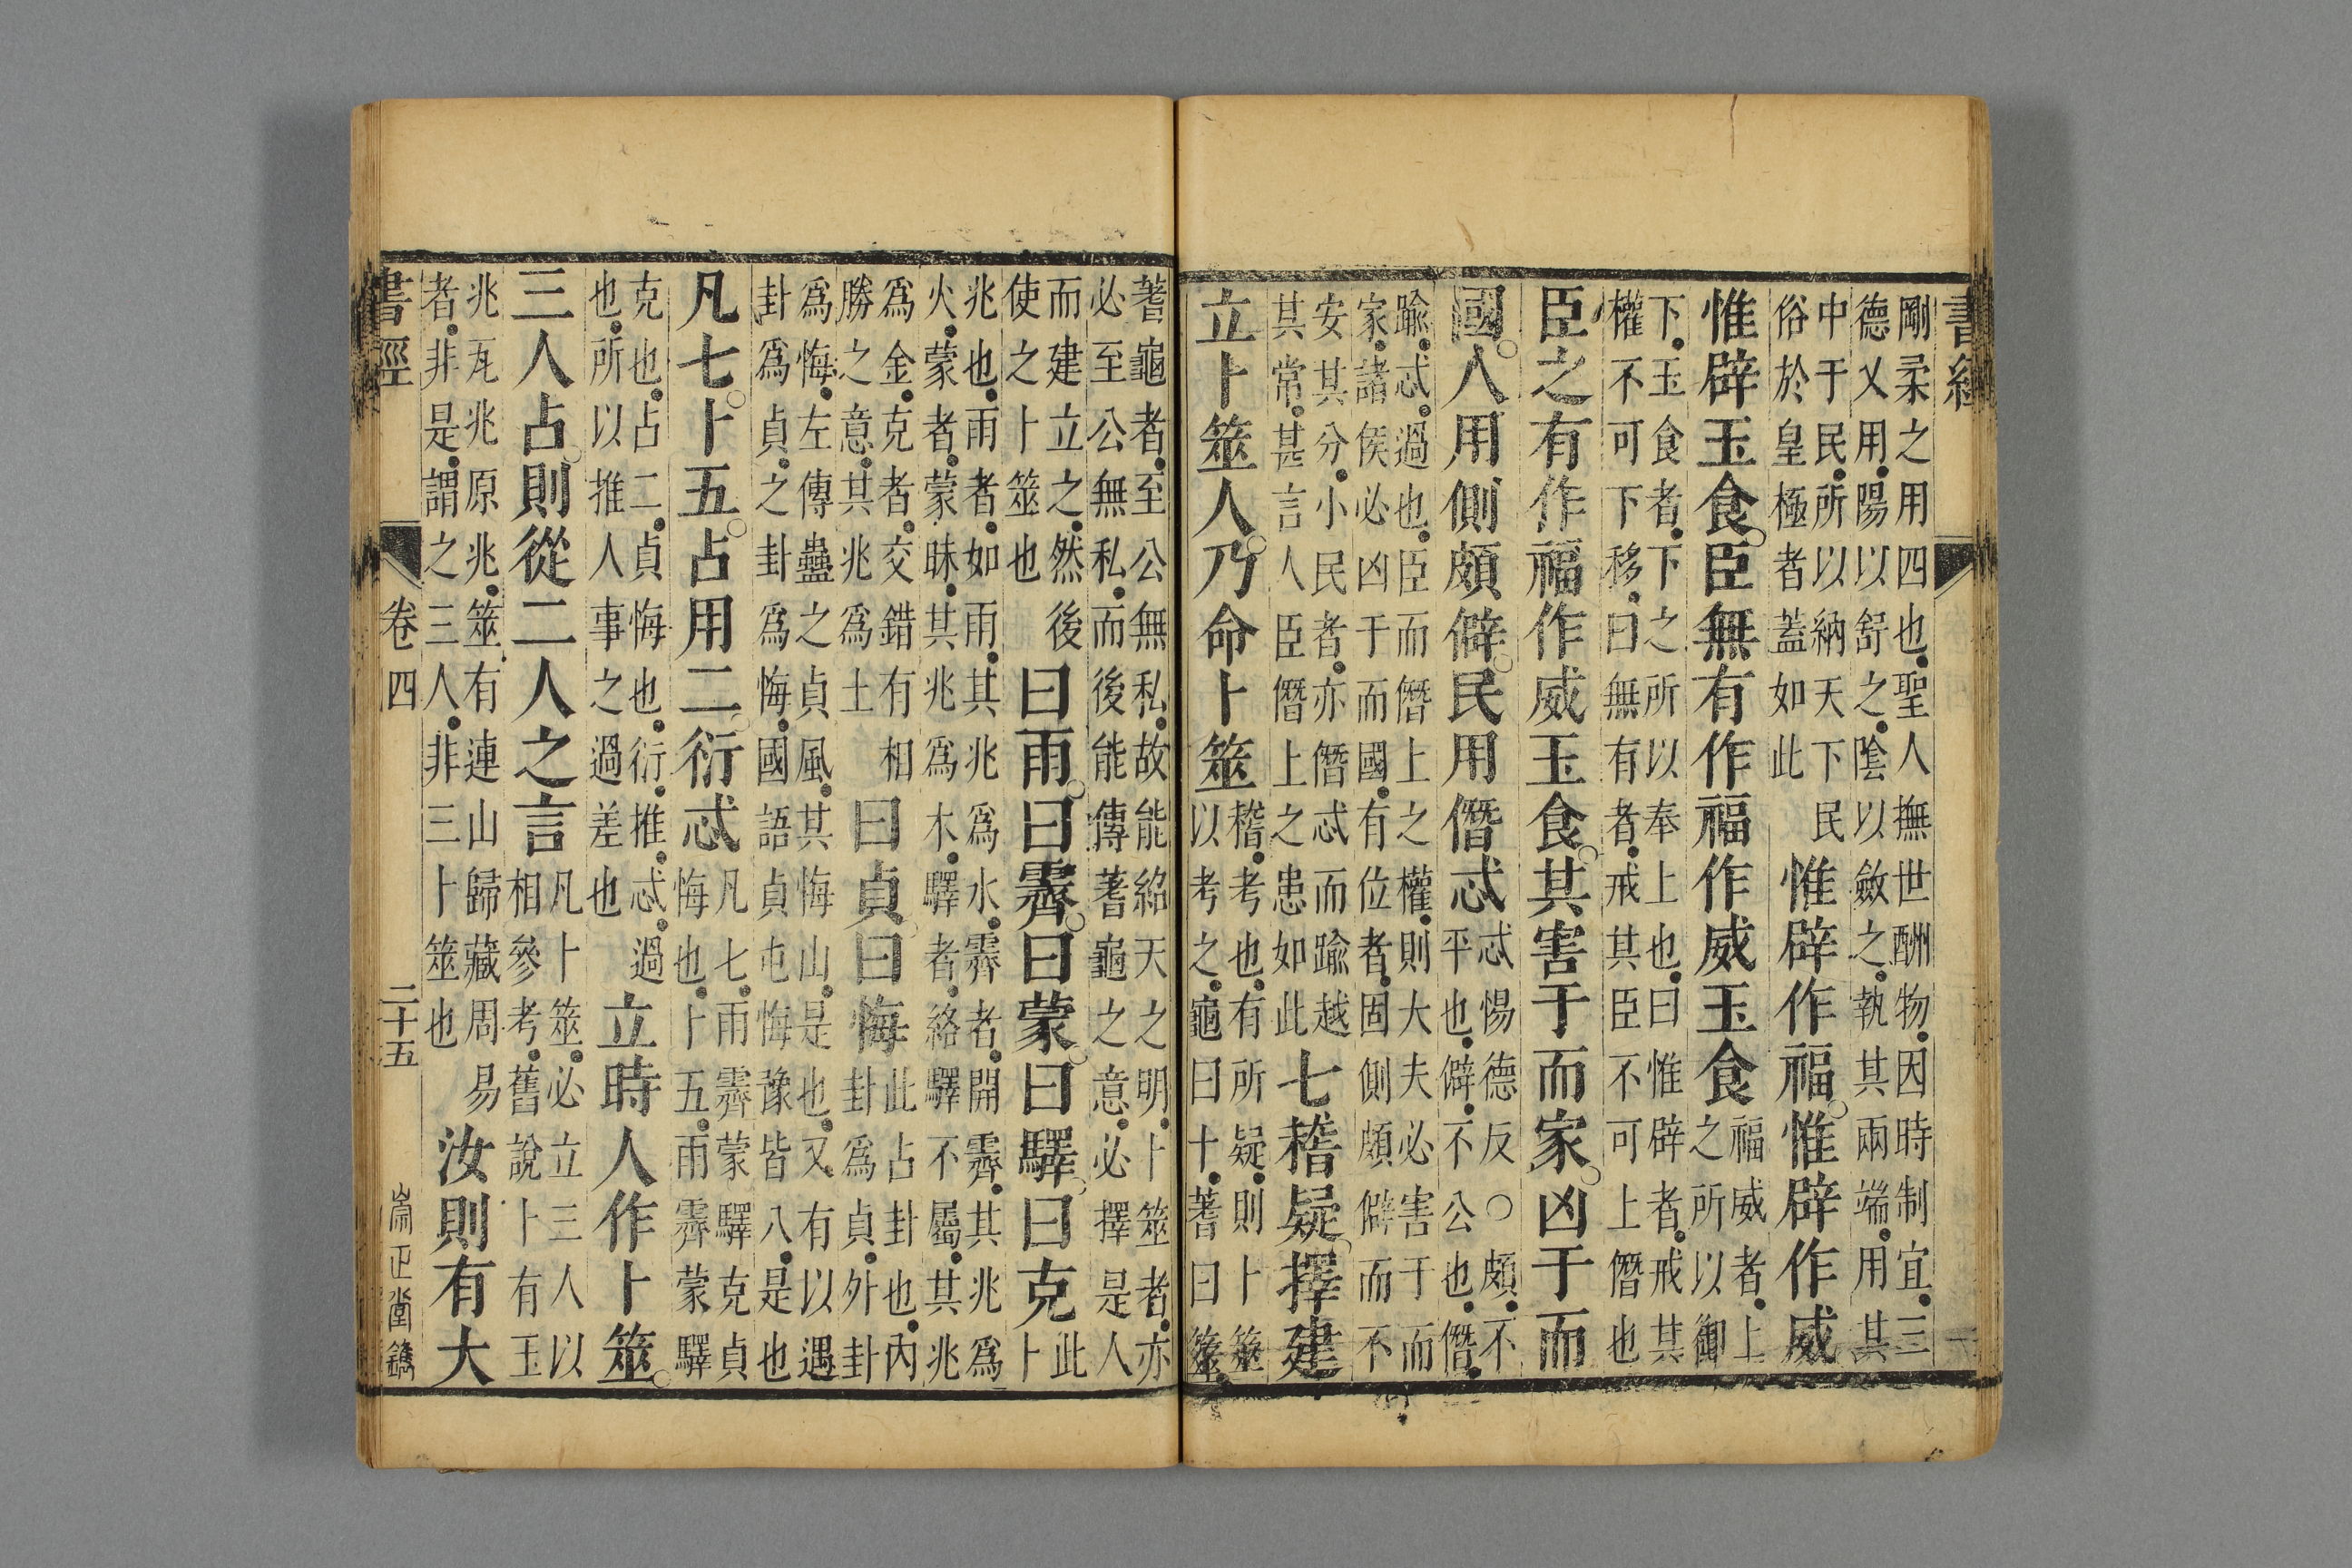 書經
剛柔之用四也聖人撫世酬物因時制宜三
德乂用陽以舒之陰以斂之執其兩端用其
中于民所以納天下民
俗於皇極者蓋如此
惟辟作福惟辟作威
惟辟玉食臣無有作福作威玉食
福威者上
之所以御
下玉食者下之所以奉上也曰惟辟者戒其
權不可下移曰無有者戒其臣不可上僭也
臣之有作福作威玉食其害于而家凶于而
國人用側頗僻民用僭忒
忒惕德反○頗不
平也僻不公也僭
踰忒過也臣而僭上之權則大夫必害于而
家諸侯必凶于而國有位者固側頗僻而不
安其分小民者亦僭忒而踰越
其常甚言人臣僭上之患如此
七稽疑擇建
立卜筮人乃命卜筮
稽考也有所疑則卜筮
以考之龜曰卜蓍曰筮
蓍龜者至公無私故能紹天之明卜筮者亦
必至公無私而後能傳蓍龜之意必擇是人
而建立之然後
使之卜筮也
曰雨曰霽曰蒙曰驛曰克
此
卜
兆也雨者如雨其兆爲水霽者開霽其兆爲
火蒙者蒙昧其兆爲木驛者絡驛不屬其兆
爲金克者交錯有相
勝之意其兆爲土
曰貞曰悔
此占卦也內
卦爲貞外卦
爲悔左傳蠱之貞風其悔山是也又有以遇
卦爲貞之卦爲悔國語貞屯悔豫皆八是也
凡七卜五占用二衍忒
凡七雨霽蒙驛克貞
悔也卜五雨霽蒙驛
克也占二貞悔也衍推忒過
也所以推人事之過差也
立時人作卜筮
三人占則從二人之言
凡卜筮必立三人以
相參考舊說卜有玉
兆瓦兆原兆筮有連山歸藏周易
者非是謂之三人非三卜筮也
汝則有大
書經 卷四 二十五 崇正堂鐫